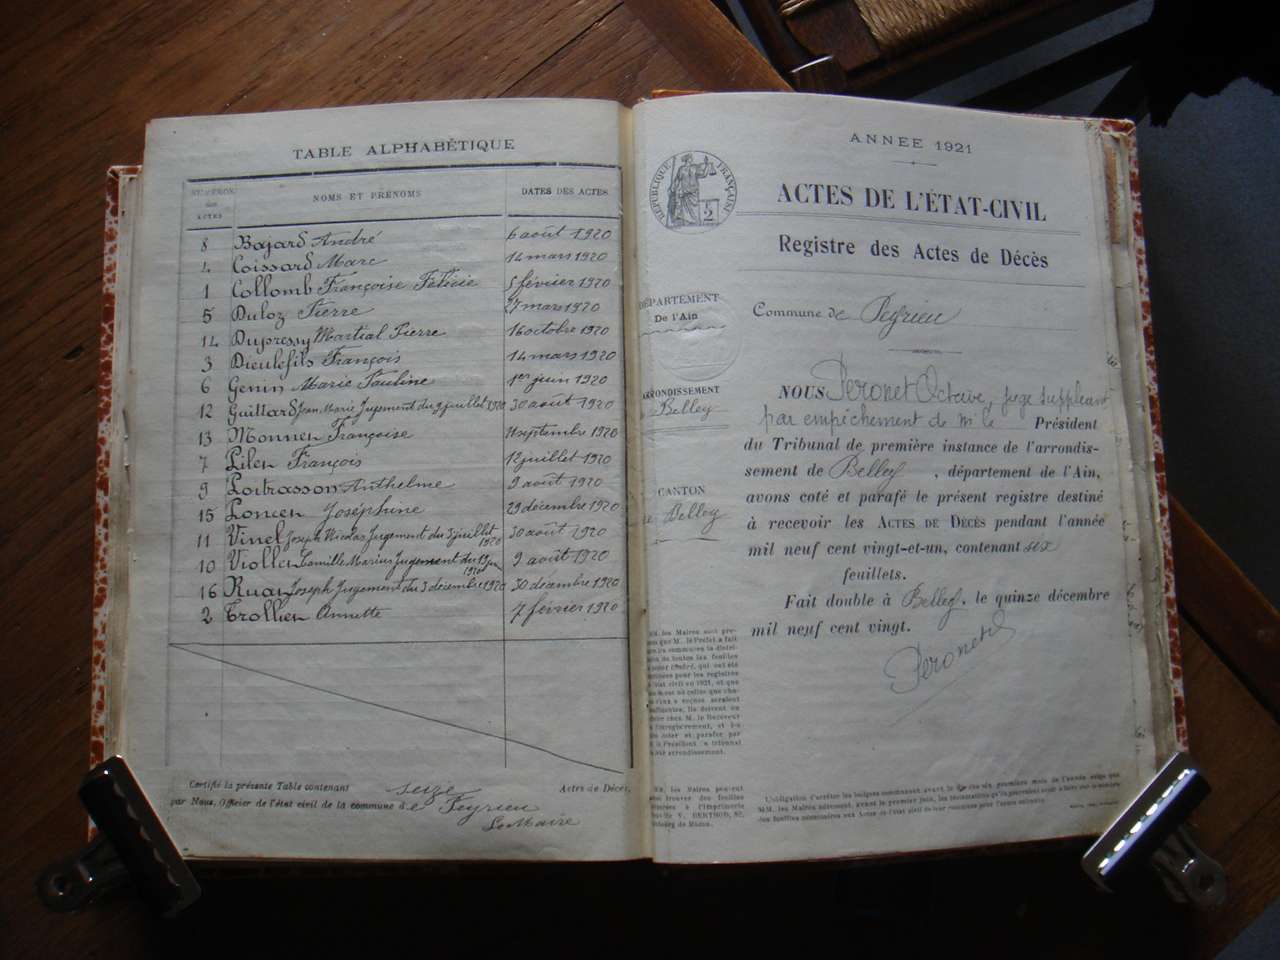 TABLE ALPHABÉTIQUE
des
ACTES
NOMS ET PRÉNOMS
DATES DES ACTES
8 Bajard André 6 août 1920
4 Coissard Marc 14 mars 1920
1 Collomb Françoise Félicie 5 février 1920
5 Duloz Pierre 27 mars 1920
14 Dupressy Martial Pierre 16 octobre 1920
3 Dieulefils François 14 mars 1920
6 Genin Marie Pauline 1er juin 1920
12 Guillard Jean Marie Jugement du 9 juillet 1920 30 août 1920
13 Monnen Françoise 11 septembre 1920
7 Pilen François 12 juillet 1920
9 Poitrasson Anthelme 9 août 1920
15 Poncen Joséphine 29 décembre 1920
11 Vinel Joseph Nicolas Jugement du 3 juillet 1920 30 août 1920
10 Viollen Camille Marius Jugement du 19 juin 1920 9 août 1920
16 Ruat Joseph Jugement du 3 décembre 1920 30 décembre 1920
2 Trollien Annette 7 février 1920
Certifié la présente Table contenant seize Actes de Décès,
par Nous, Officier de l'état civil de la commune de Peyrieu
Le Maire
ANNÉE 1921
RÉPUBLIQUE FRANÇAISE
2
ACTES DE L'ÉTAT-CIVIL
Registre des Actes de Décès
DÉPARTEMENT
De l'Ain
Commune de Peyrieu
ARRONDISSEMENT
de Belley
CANTON
de Belley
NOUS Peronet Octave, juge suppléant
par empêchement de Mr le Président
du Tribunal de première instance de l'arrondis-
sement de Belley, département de l'Ain,
avons coté et parafé le présent registre destiné
à recevoir les ACTES DE DÉCÈS pendant l'année
mil neuf cent vingt-et-un, contenant six
feuillets.
Fait double à Belley, le quinze décembre
mil neuf cent vingt.
Peronet
MM. les Maires sont pré-
venus que M. le Préfet a fait
de toutes les feuilles
qui ont été
pour les registres
état civil en 1921, et que
celles que
reçues seraient
ils doivent en
chez M. le Receveur
l'Enregistrement, et
coter et parafer par
le Président du tribunal
arrondissement.
MM. les Maires peuvent
trouver des feuilles
à l'Imprimerie
V. BERTHOD, 82,
Bourg.